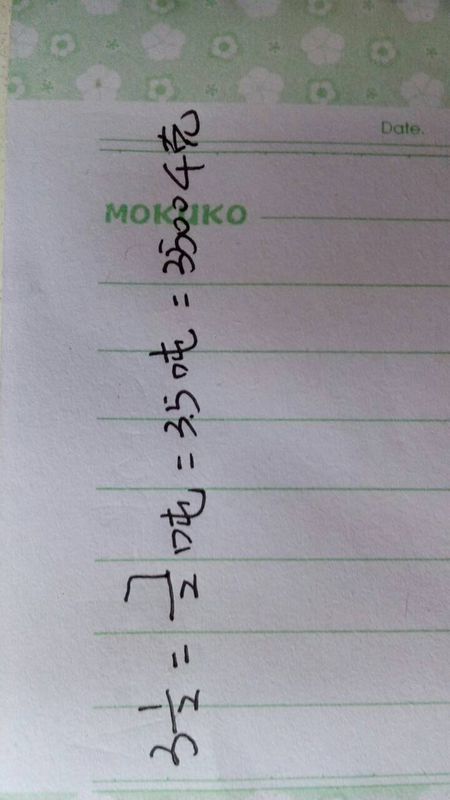 Date.
MOKUKO
3 1/2 = 7/2 吨 = 3.5 吨 = 3500 千克